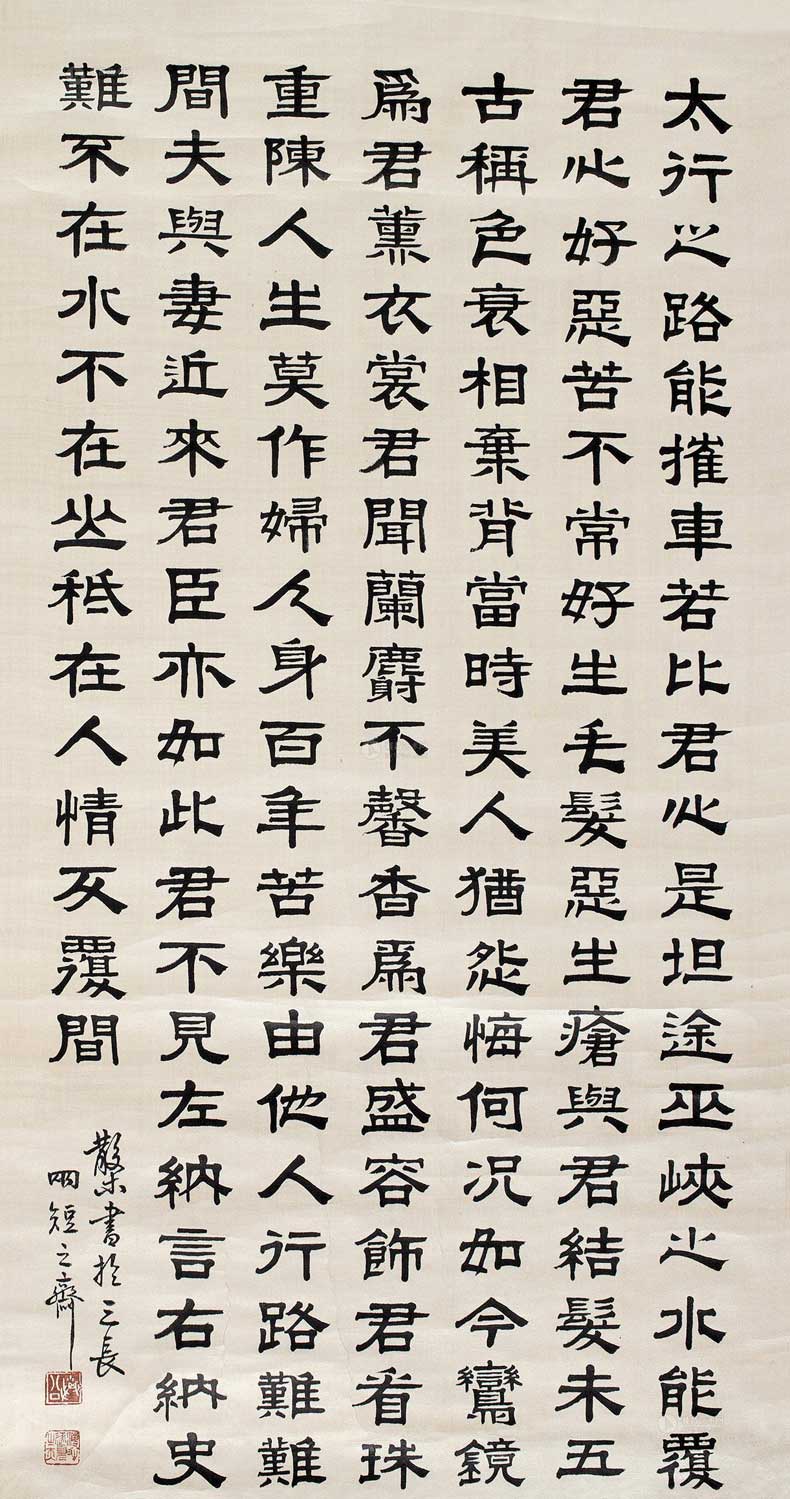 太行之路能摧車若比君心是坦途巫峽之水能覆
君心好惡苦不常好生毛髮惡生瘡與君結髮未五
古稱色衰相棄背當時美人猶怨悔何況如今鸞鏡
爲君薰衣裳君聞蘭麝不馨香爲君盛容飾君看珠
重陳人生莫作婦人身百年苦樂由他人行路難難
間夫與妻近來君臣亦如此君不見左納言右納史
難不在水不在山秪在人情反覆間
散木書於三長
兩短之齋